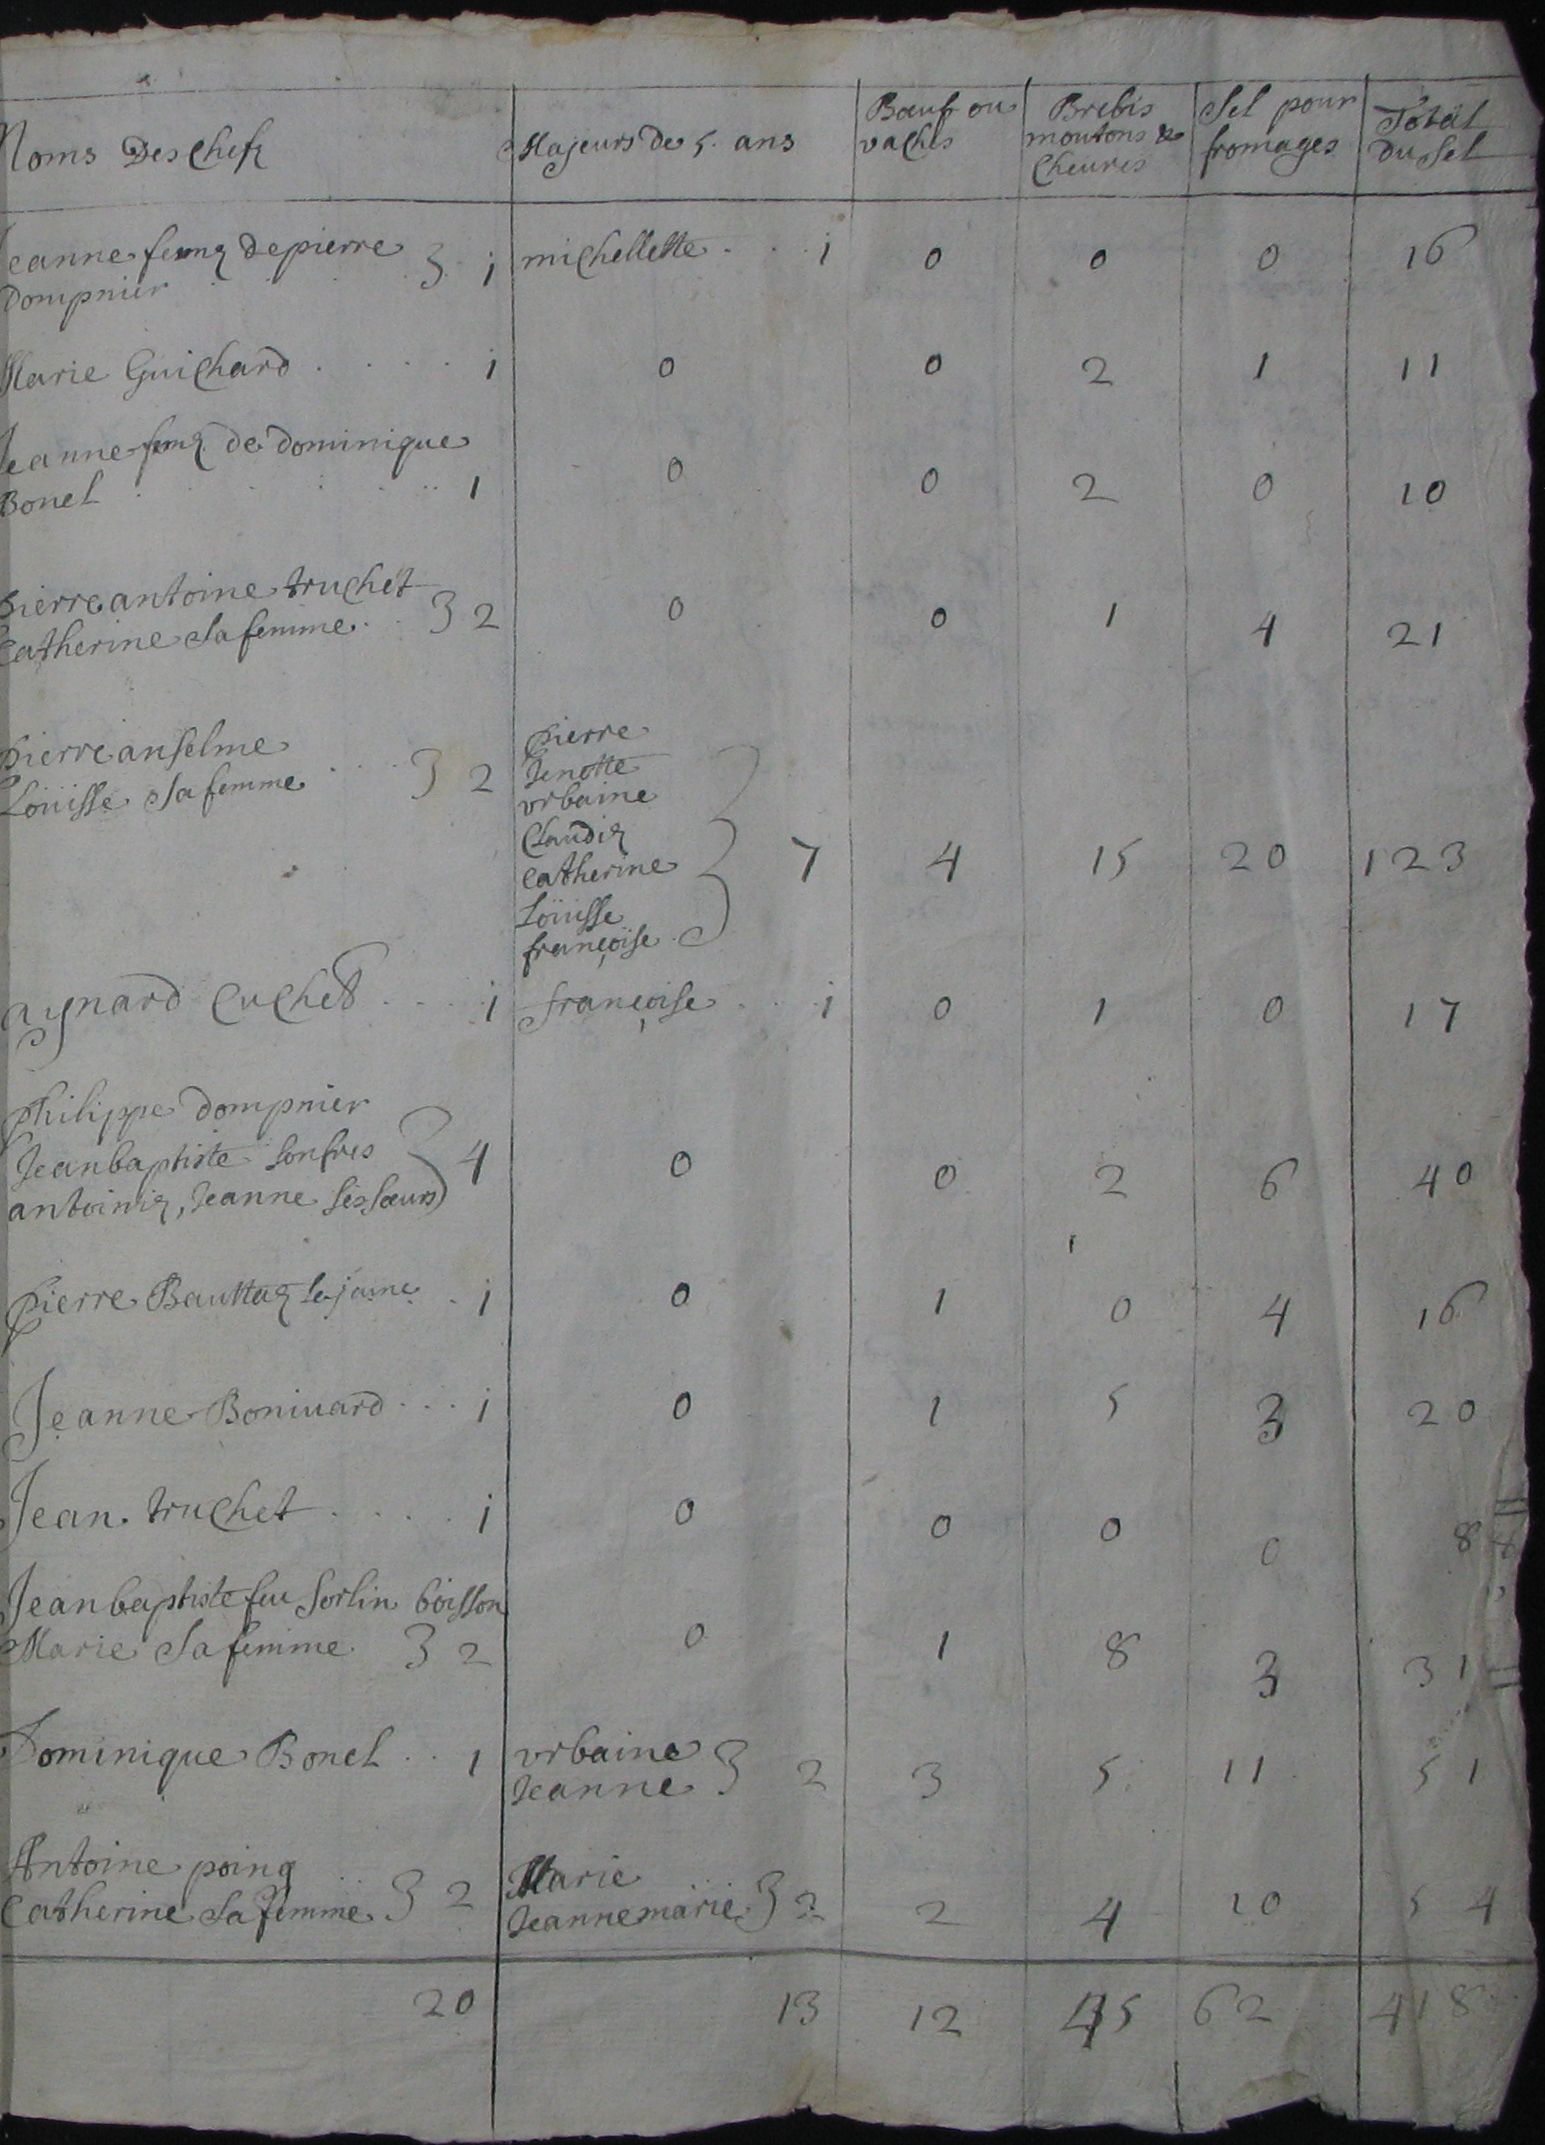 Noms Des Chefz | Majeurs de 5. ans | Bœufs ou vaches | Brebis moutons & Cheures | Sel pour fromages | Total Du Sel
Jeanne femę de pierre
Dompnier 3 1 | michellette 1 | 0 | 0 | 0 | 16
Marie Guichard 1 | 0 | 0 | 2 | 1 | 11
Jeanne femę de dominique
Bonel 1 | 0 | 0 | 2 | 0 | 10
pierre antoine truchet
Catherine Sa femme 3 2 | 0 | 0 | 1 | 4 | 21
pierre anselme
Loüisse Sa femme 3 2
pierre
Jenotte
vrbaine
Claudię
Catherine 7 | 4 | 15 | 20 | 123
Loüisse
françoise
aynard Cuchet 1 | françoise 1 | 0 | 1 | 0 | 17
philippe dompnier
Jean baptiste son fres 4 | 0 | 0 | 2 | 6 | 40
antoinię, Jeanne ses sœurs
pierre Bauttaę le jeune 1 | 0 | 1 | 0 | 4 | 16
Jeanne Boniuard 1 | 0 | 1 | 5 | 3 | 20
Jean truchet 1 | 0 | 0 | 0 | 0 | 8
Jean baptiste feu sorlin boisson
Marie Sa femme 3 2 | 0 | 1 | 8 | 3 | 31
Dominique Bonel 1 | vrbaine
Jeanne 3 2 | 3 | 5 | 11 | 51
Antoine poinę
Catherine Sa femme 3 2 | Marie
Jeanne marie 3 2 | 2 | 4 | 10 | 54
20 | 13 | 12 | 45 | 62 | 418